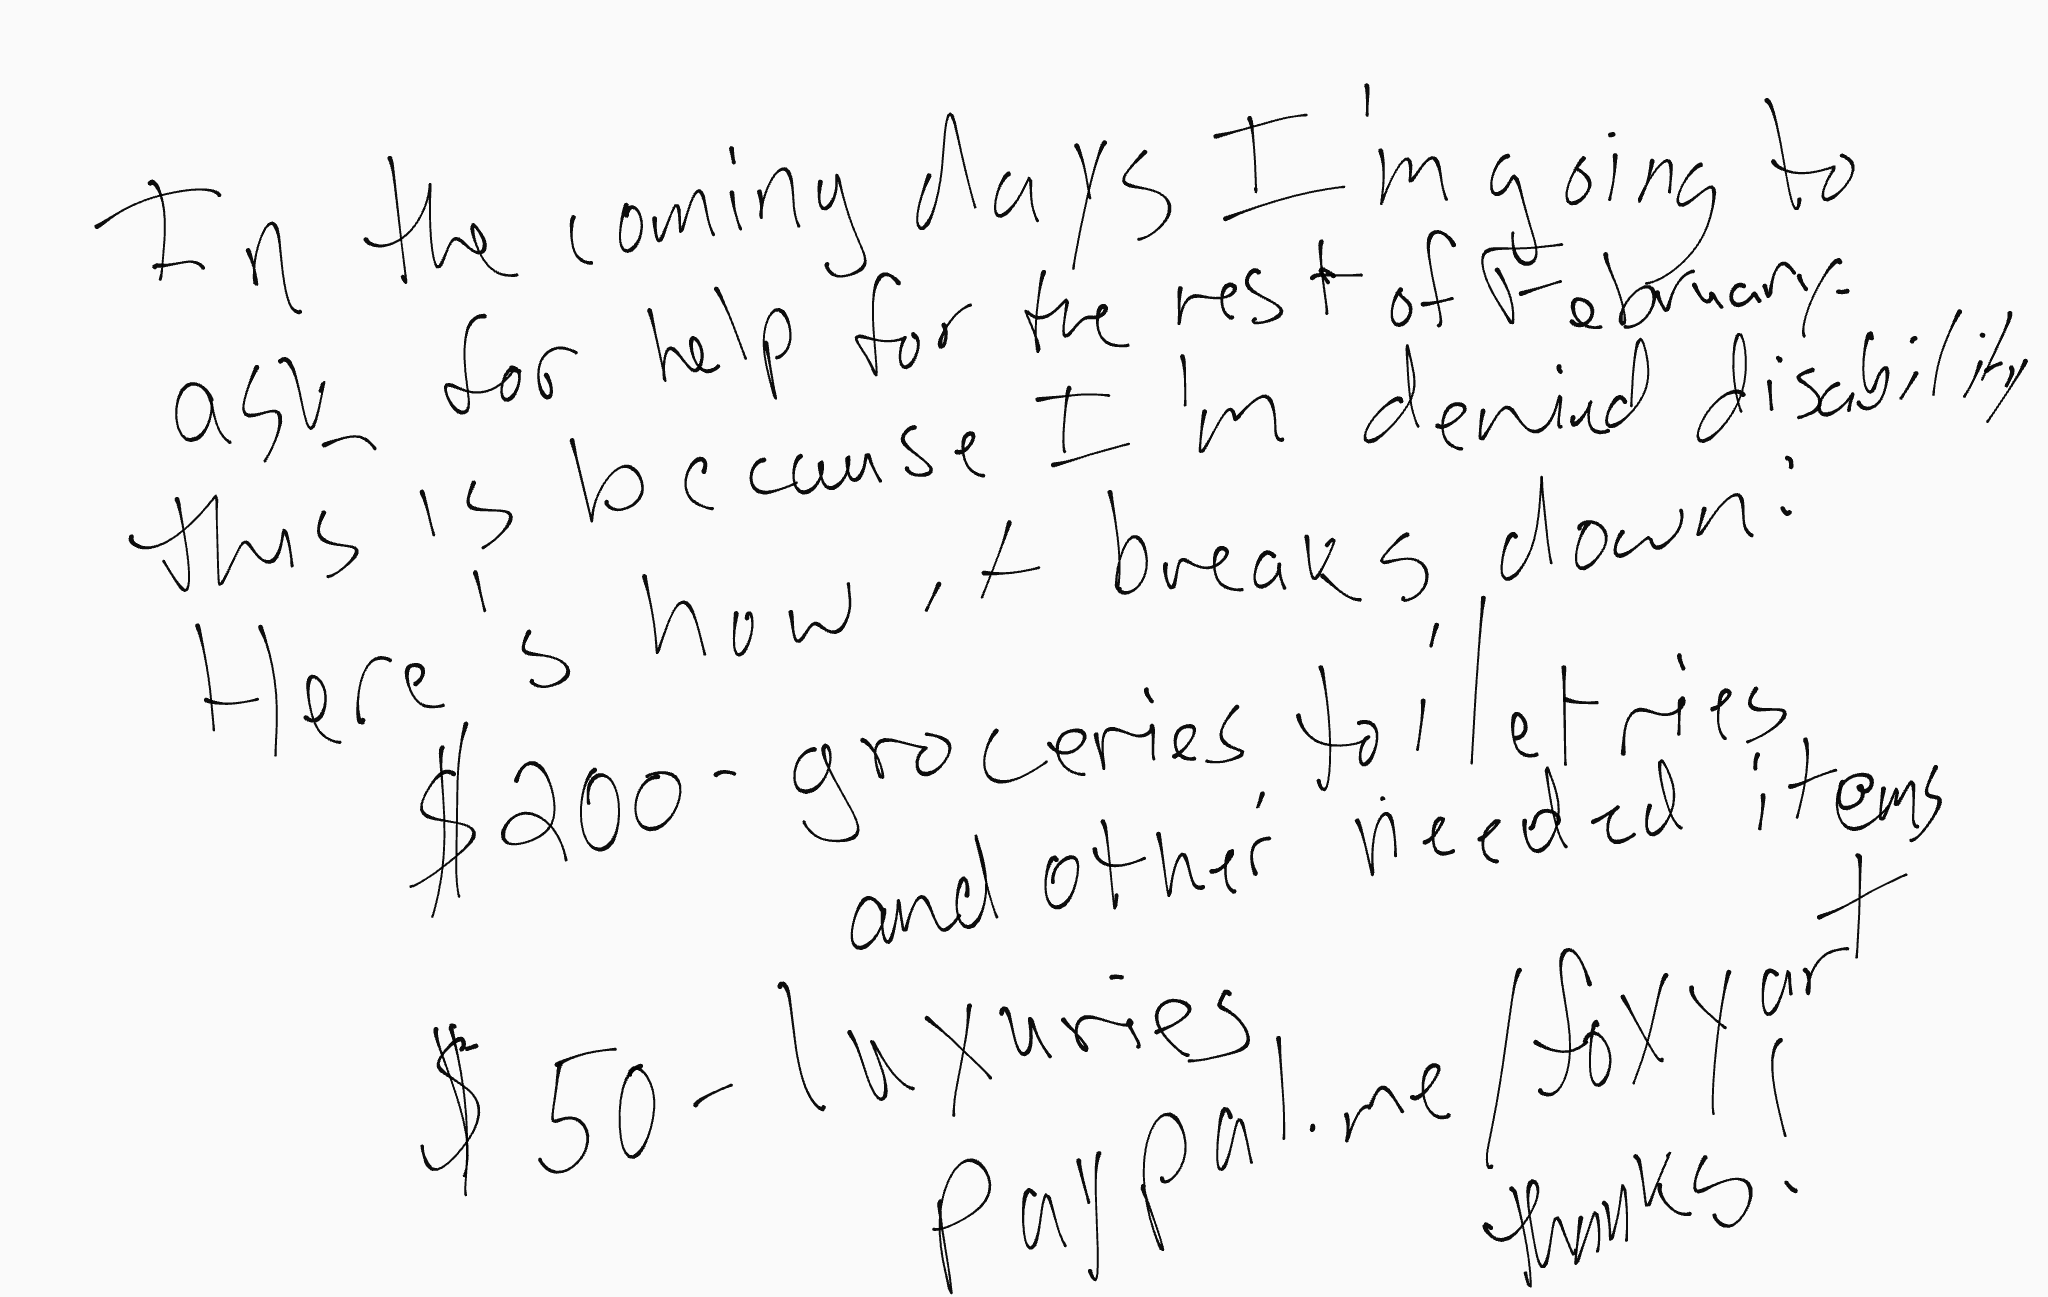 In the coming days I'm going to
ask for help for the rest of February.
this is because I'm denied disability
Here's how it breaks down:
$200- groceries toiletries
and other needed items
$50- luxuries
paypal.me/foxyart
thanks!